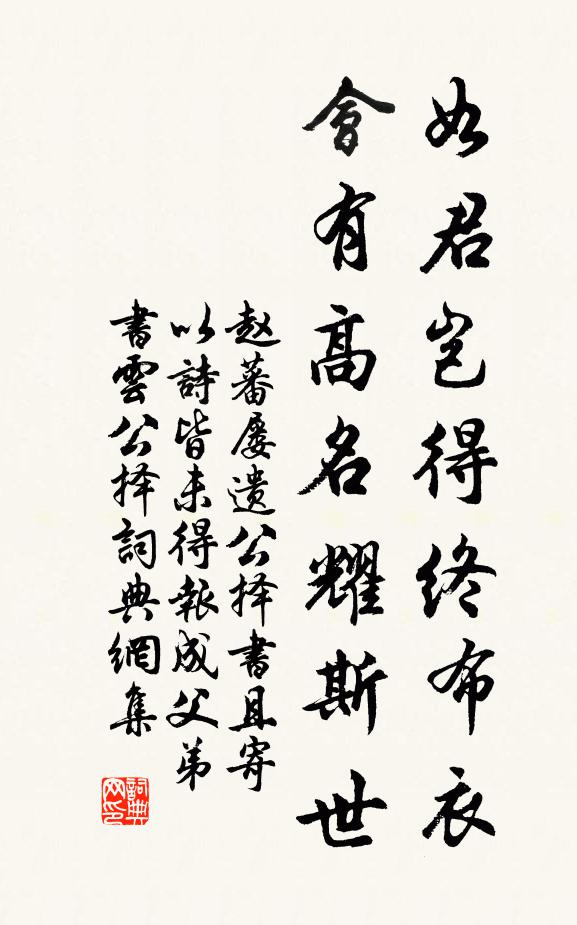 如君岂得终布衣
會有高名耀斯世
赵蕃屡遗公择書且寄
以詩皆未得報成父弟
書雲公择詞典網集
詞典
网印